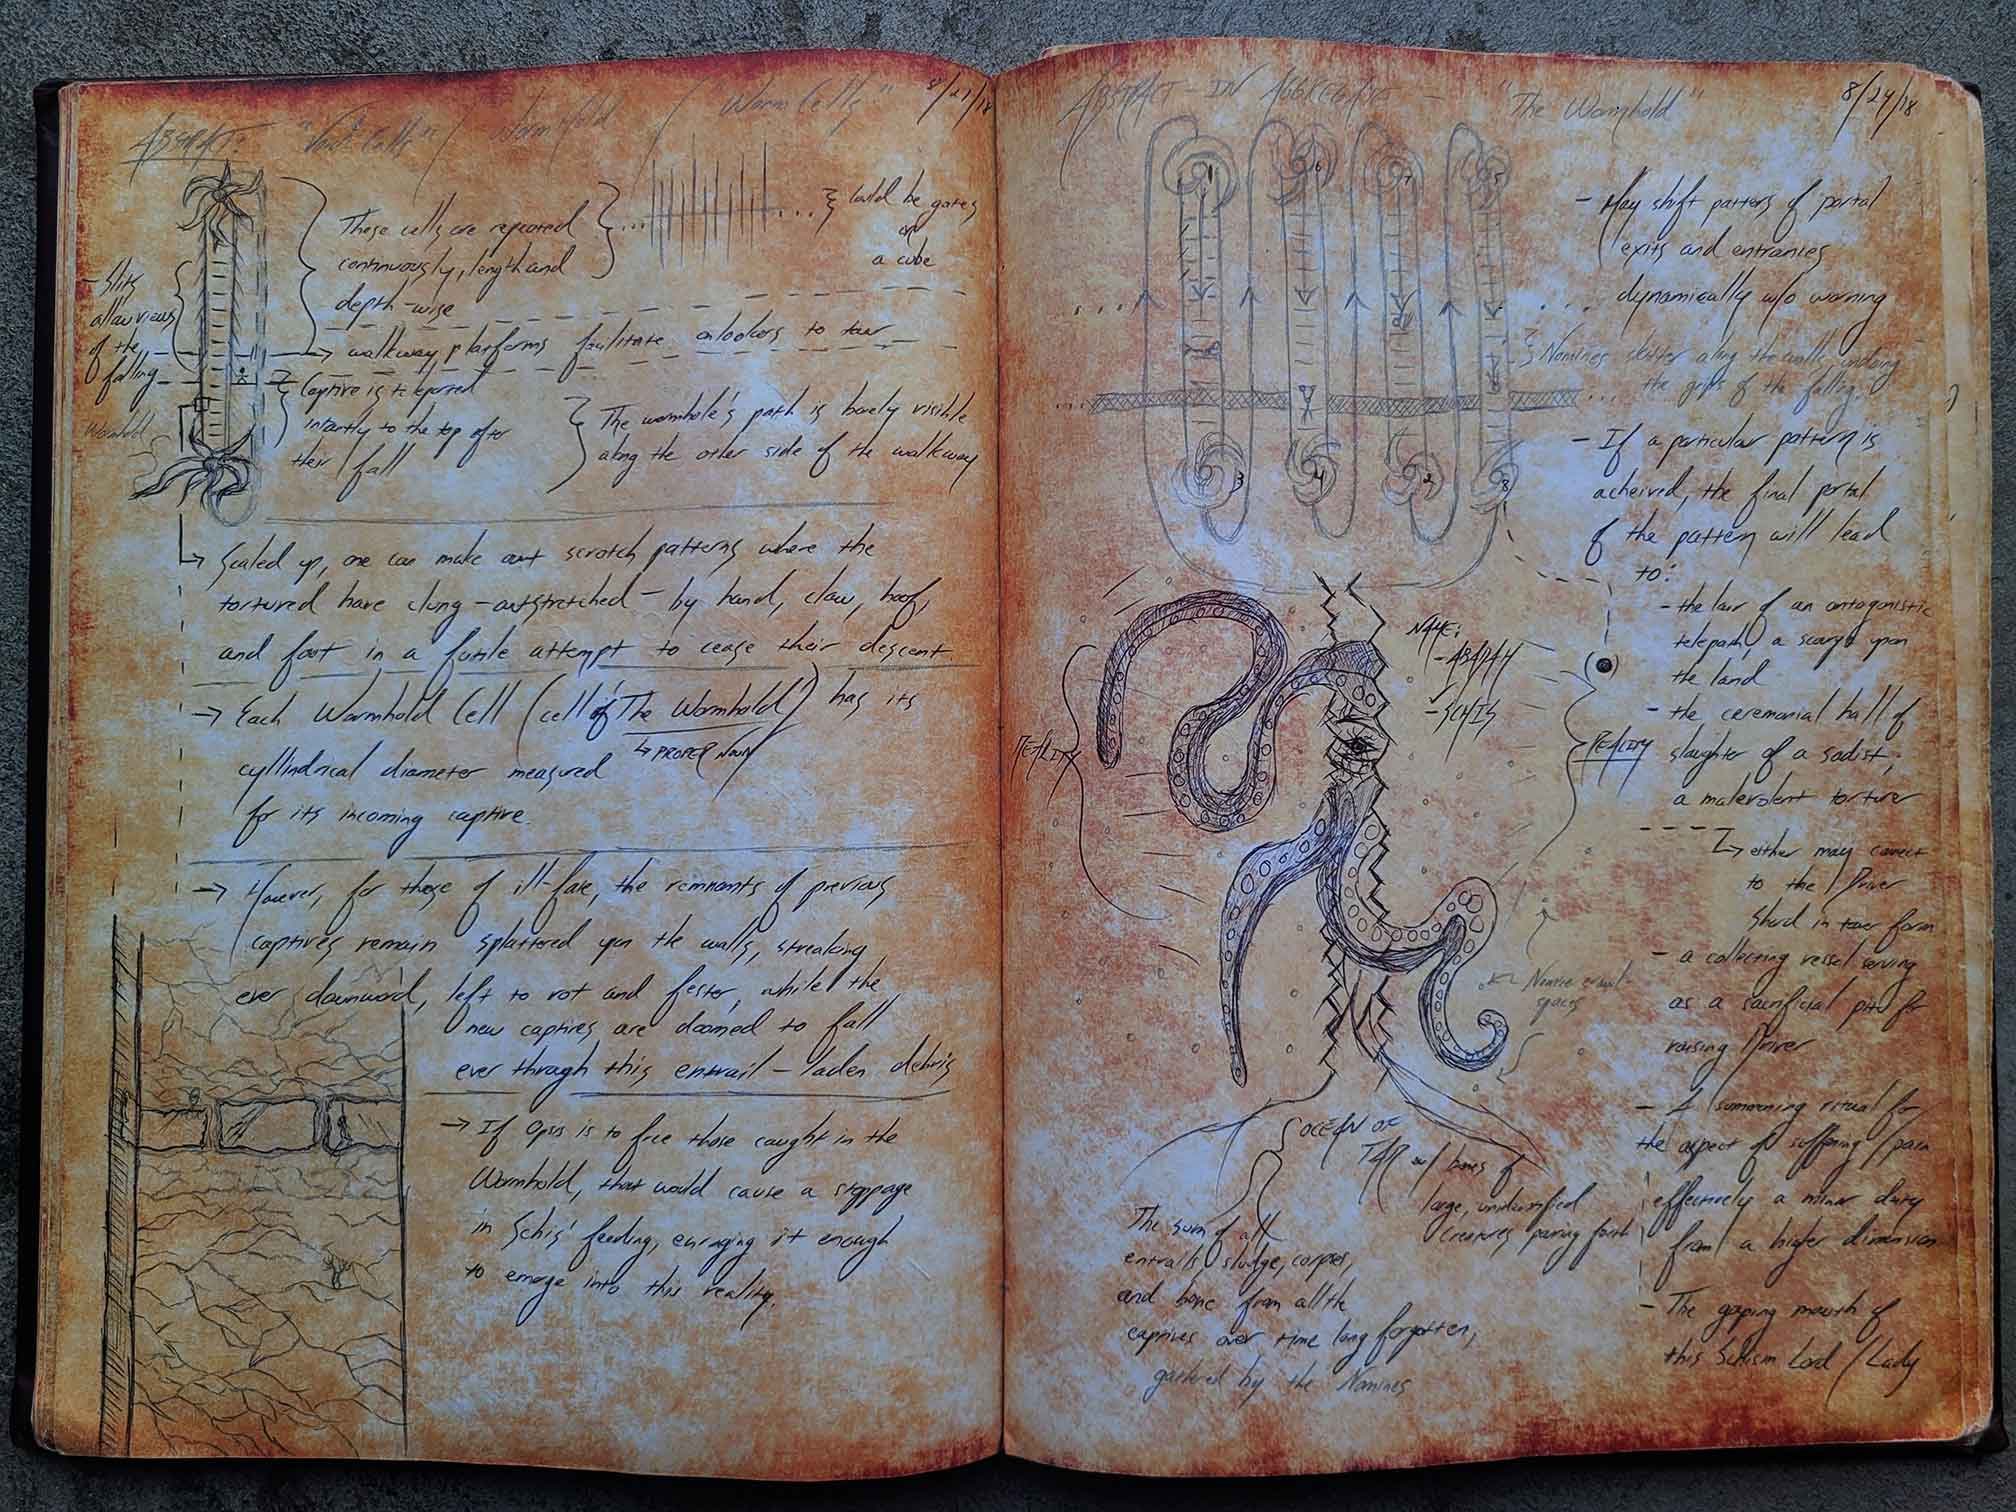 ABSTRACT: "Void Cells" / Wormhold / "Worm Cells" 8/21/18
These cells are repeated
continuously, length and
depth-wise
... ...
Could be gates
on
a cube
- Slits
allow views
of the
falling
walkway platforms facilitate onlookers to
Captive is teleported
instantly to the top after
their fall
The wormhole's path is barely visible
along the other side of the walkway
Scaled up, one can make out scratch patterns where the
tortured have clung - outstretched - by hand, claw, hoof,
and foot in a futile attempt to cease their descent.
Each Wormhold Cell (cell of "The Wormhold") has its
PROPER NOUN
cyllindrical diameter measured
for its incoming captive.
However, for those of ill-fate, the remnants of previous
captives remain splattered upon the walls, streaking
ever downward, left to rot and fester, while the
new captives are doomed to fall
ever through this entrail-laden debris
If Opsis is to free those caught in the
Wormhold, that would cause a stoppage
in Schis' feeding, enraging it enough
to emerge into this reality.
ABSTRACT - IN AGGREGATE - "The Wormhold" 8/24/18
1 6 7 5
3 4 2 8
- May shift pattern of portal
exits and entrances
dynamically w/o warning
Nomines skitter along the walls, undoing
the grips of the falling.
- If a particular pattern is
acheived, the final portal
of the pattern will lead
to:
- the lair of an antagonistic
telepath, a scourge upon
the land
- the ceremonial hall of
slaughter of a sadist;
a malevolent torturer
either may connect
to the Driver
Shard in tower form
- a collecting vessel serving
as a sacrificial pit for
raising Driver
- A summoning ritual for
the aspect of suffering / pain
effectively a minor deity
from a higher dimension
- The gaping mouth of
this Schism Lord / Lady
NAME:
- ABADAH
- SCHIS
REALITY
REALITY
Nomine crawl-
spaces
OCEAN OF
TAR w/ bones of
large, unidentified
creatures pouring forth
The sum of all
entrails, sludge, corpses,
and bone from all the
captives over time long forgotten,
gathered by the Nomines